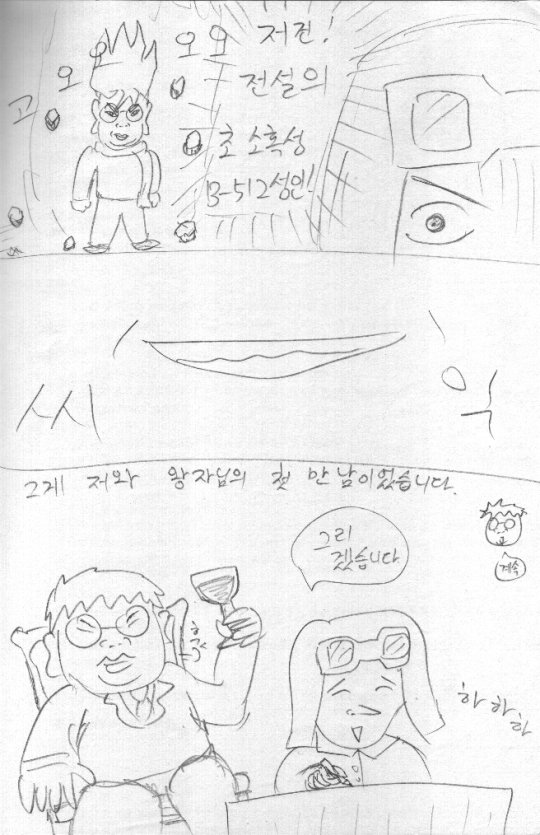 고 오 오 오 오
저건!
전설의
초 소혹성
B-512성인!
씨 익
그게 저와 왕자님의 첫 만남이었습니다.
계속
그리
겠습니다
하 하 하